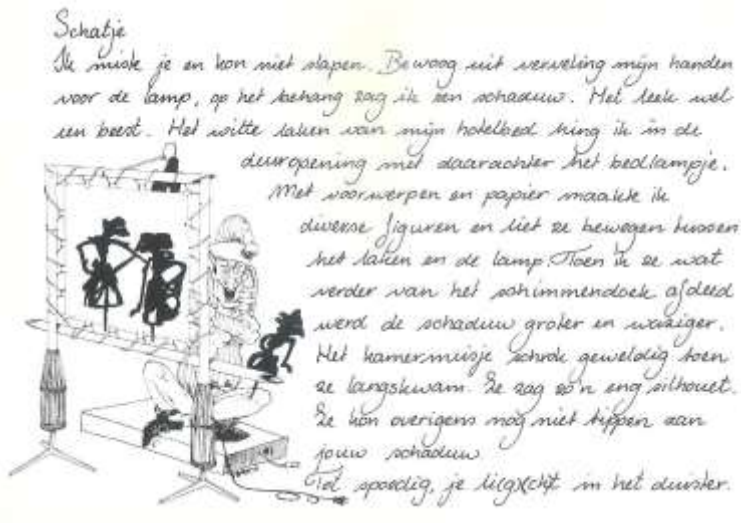 Schatje
Ik miste je en kon niet slapen. Bewoog uit verveling mijn handen
voor de lamp, op het behang zag ik een schaduw. Het leek wel
een beest. Het witte laken van mijn hotelbed hing ik in de
deuropening met daarachter het bedlampje.
Met voorwerpen en papier maakte ik
diverse figuren en liet ze bewegen tussen
het laken en de lamp. Toen ik ze wat
verder van het schimmendoek afdeed
werd de schaduw groter en waziger.
Het kamermuisje schrok geweldig toen
ze langskwam. Ze zag zo'n eng silhouet.
Ze kon overigens nog niet tippen aan
jouw schaduw
Tot spoedig, je li(g)(ch)t in het duister.